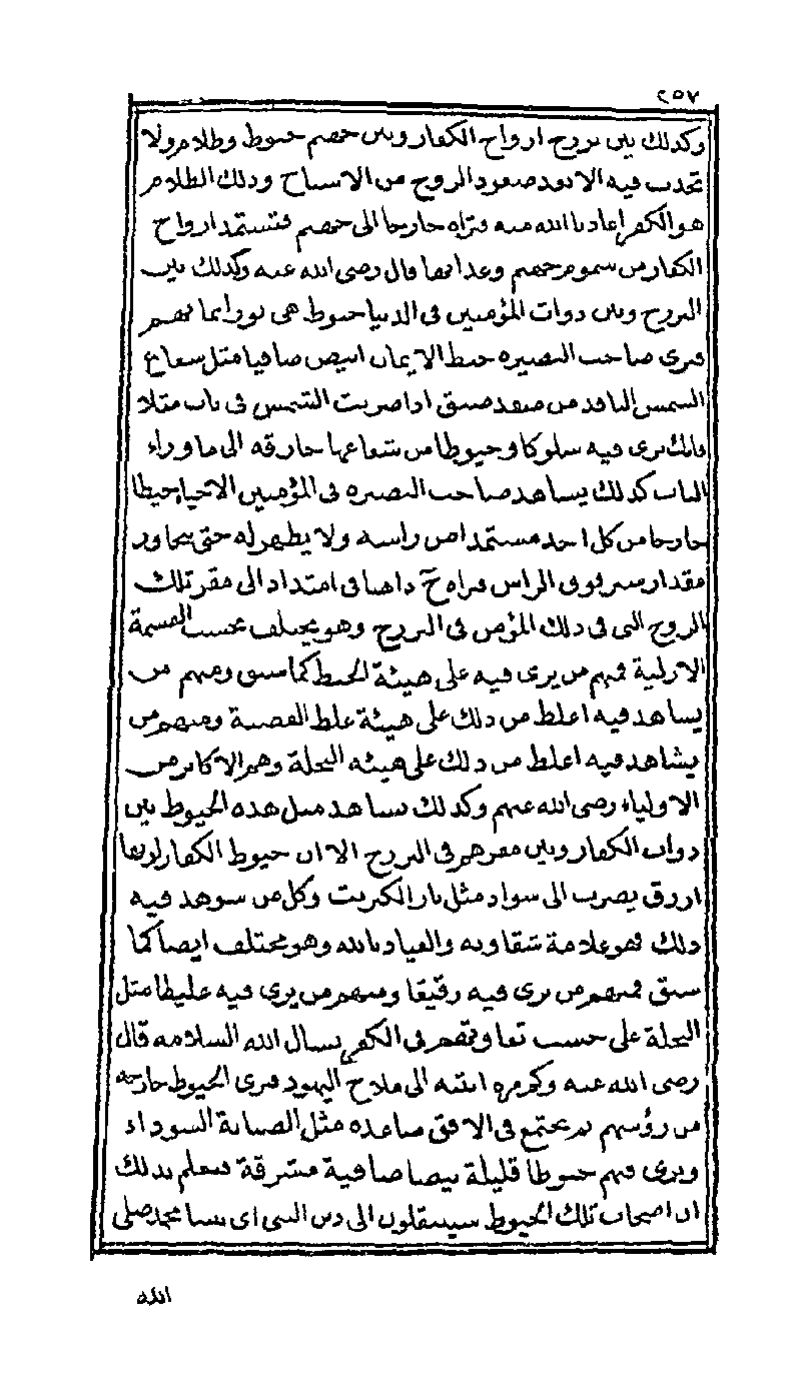 ٢٥٧
وكذلك بين برزخ ارواح الكفار وبين جهنم خيوط وظلام ولا
تحدث فيه الا بعد صعود الروح من الاشباح وذلك الظلام
هو الكفر اعاذنا الله منه فتراه خارجا الى جهنم فتستمد ارواح
الكفار من سموم جهنم وعذابها قال رضى الله عنه وكذلك بين
البرزخ وبين ذوات المؤمنين فى الدنيا خيوط هى نور ايمانهم
فيرى صاحب البصيره خيط الايمان ابيض صافيا مثل شعاع
الشمس النافذ من منفذ ضيق اذا ضربت الشمس فى باب مثلا
فانك ترى فيه سلوكا وخيوطا من شعاعها خارقه الى ما وراء
الباب كذلك يشاهد صاحب البصيره فى المؤمنين الاحياء خيطا
خارجا من كل احد مستمدا من راسه ولا يظهر له حتى يجاوز
مقدار شبر فوق الراس فيراه ح ذاهبا فى امتداد الى مقر تلك
الروح التى فى ذلك المؤمن فى البرزخ وهو يختلف بحسب القسمة
الازلية فمنهم من يرى فيه على هيئة الخيط كما سبق ومنهم من
يشاهد فيه اغلظ من ذلك على هيئة غلظ القصبة ومنهم من
يشاهد فيه اغلظ من ذلك على هيئه النخلة وهم الاكابر من
الاولياء رضى الله عنهم وكذلك نشاهد مثل هذه الخيوط بين
ذوات الكفار وبين مقرهم فى البرزخ الا ان خيوط الكفار لونها
ازرق يضرب الى سواد مثل نار الكبريت وكل من شوهد فيه
ذلك فهو علامة شقاوته والعياذ بالله وهو يختلف ايضا كما
سبق فمنهم من يرى فيه رقيقا ومنهم من يرى فيه غليظا مثل
النخلة على حسب تفاوتهم فى الكفر نسال الله السلامه قال
رضى الله عنه وكم مره انتبه الى ملاح اليهود فيرى الخيوط خارجه
من رؤسهم ثم تجتمع فى الافق صاعده مثل الضبابة السوداء
ويرى فيهم خيوطا قليلة بيضا صافية مشرقة فيعلم بذلك
ان اصحاب تلك الخيوط سينتقلون الى دين النبى اى نبينا محمد صلى
الله